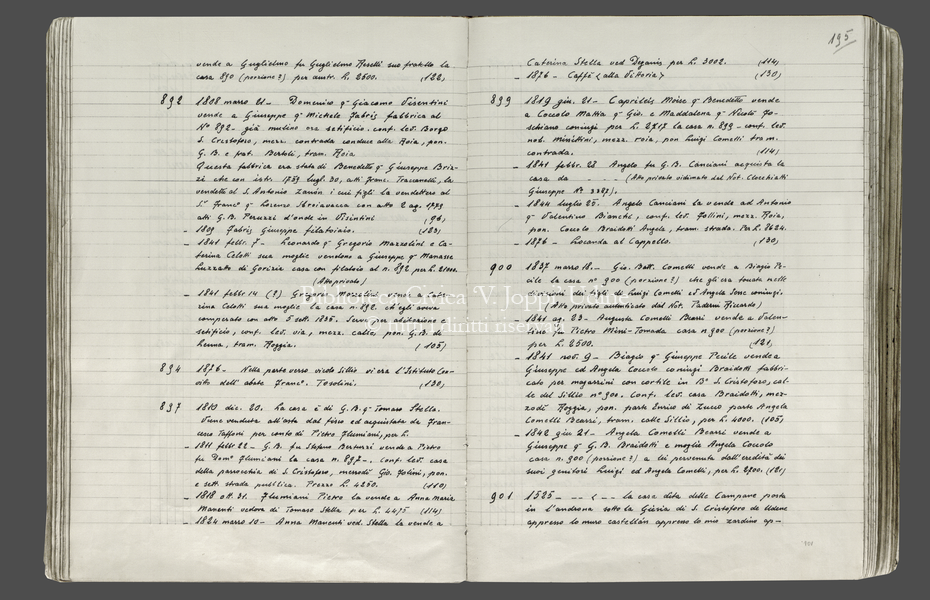 vende a Guglielmo fu Guglielmo Roselli suo fratello la
casa 890 (porzione?) per austr. L. 2500. (122)
892 1808 marzo 21 - Domenico qm Giacomo Visentini
vende a Giuseppe qm Michele Fabris fabbrica al
N° 892 - già mulino ora setificio. conf. lev. Borgo
S. Cristoforo, mezz. contrada conduce alla Roia, pon.
G. B. e fat. Bertoli, tram. Roia
Questa fabbrica era stata di Benedetto qm Giuseppe Briz-
zi che con istr. 1759 lugl. 30, atti Franc. Tracanelli, la
vendette al S. Antonio Zanon i cui figli la vendettero al
S.r Franc° qm Lorenzo Sbroiavacca con atto 2 ag. 1799
atti G. B. Peruzzi d'onde in Visintini (96)
- 1809 Fabris Giuseppe filatoiaio. (123)
- 1841 febb. 7 - Leonardo qm Gregorio Mazzolini e Ca-
terina Celotti sua moglie vendono a Giuseppe qm Manasse
Luzzatto di Gorizia casa con filatoio al n. 892 per L. 21000.
(Atto privato)
- 1841 febb. 14 (?) Mazzolini
rina Celotti sua moglie la casa n. 892. che egli aveva
comperato con atto 5 sett. 1835. Serve per abitazione e
setificio, conf. lev. via, mezz. calle, pon. G. B. de
Lenna, tram. Roggia. (105)
894 1876 - Nella parte verso vicolo Sillio vi era l'Istituto Con-
vitto dell'abate Franc°. Tosolini. (130)
897 1810 dic. 20. La casa è di G. B. qm Tomaso Stella.
Viene venduta all'asta dal fisco ed acquistata da Fran-
cesco Taffotti per conto di Pietro Flumiani, per L.
- 1811 febb. 22 - G. B. fu Stefano Bertuzzi vende a Pietro
fu Dom° Flumiani la casa n. 897 -. Conf. lev. casa
della parrocchia di S. Cristoforo, merrodì Gio. Folini, pon.
e sett. strada pubblica. Prezzo L. 4250. (110)
- 1818 ott. 31. Flumiani Pietro la vende a Anna Maria
Manenti vedova di Tomaso Stella per L. 4475 (114)
- 1824 marzo 10 - Anna Manenti ved. Stella la vende a
195
Caterina Stella ved Deganis per L. 3002. (114)
- 1876 - Caffè <alla Vittoria> (130)
899 1819 giu. 21 - Caprileis Moise qm Benedetto vende
a Coccolo Mattia qm Gio. e Maddalena qm Nicolò Fo-
schiano coniugi per L. 2717 la casa n. 899 - conf. lev.
nob. Minittini, mezz. roia, pon Luigi Comelli tram.
contrada. (114)
- 1841 febbr. 28 Angelo fu G. B. Canciani acquista la
casa da - - - - (Atto privato vidimato del Not. Clocchiatti
Giuseppe N° 3387).
- 1844 luglio 25. Angelo Canciani la vende ad Antonio
qm Valentino Bianchi, conf. lev. Follini, mezz. Roia,
pon. Coccolo Braidotti Angela, tram. strada. Per L. 2624.
- 1876 - Locanda al Cappello. (130)
900 1837 marzo 18. - Gio. Batt. Comelli vende a Biagio Pe-
cile la casa n° 900 (porzione?) che gli era toccata nelle
divisioni dei figli de Luigi Comelli ed Angela Jose coniugi.
(Atto privato autenticato dal Not. Paderni Riccardo)
- 1841 ag. 23 - Augusta Comelli Bearzi a Valen-
tino fu Pietro Mini-Tomada casa n. 900 (porzione?)
per L. 2500. (121)
- 1841 nov. 9 - Biagio qm Giuseppe Pecile vende a
Giuseppe ed Angela Coccolo coniugi Braidotti fabbri-
cato per magazzini con cortile in B° S. Cristoforo, cal-
le del Sillio n° 900. Conf. lev. casa Braidotti, mez-
zodì Roggia, pon. parte Enrico di Zucco parte Angela
Comelli Bearzi, tram. calle Sillio, per L. 4000. (105)
- 1842 giu 21 - Angela Comelli Bearzi vende a
Giuseppe qm G. B. Braidotti e moglie Angela Coccolo
casa n. 900 (porzione?) a lei pervenuta dall'eredità dei
suoi genitori Luigi ed Angela Comelli, per L. 2700. (121)
901 1525 - - - < - - la casa dita delle Campane posta
in l'androna sotto la Giesia di S. Cristoforo de Udene
appresso lo muro castellan appresso lo mio zardino ap-
Biblioteca Civica V. Joppi Udine
© tutti i diritti riservati